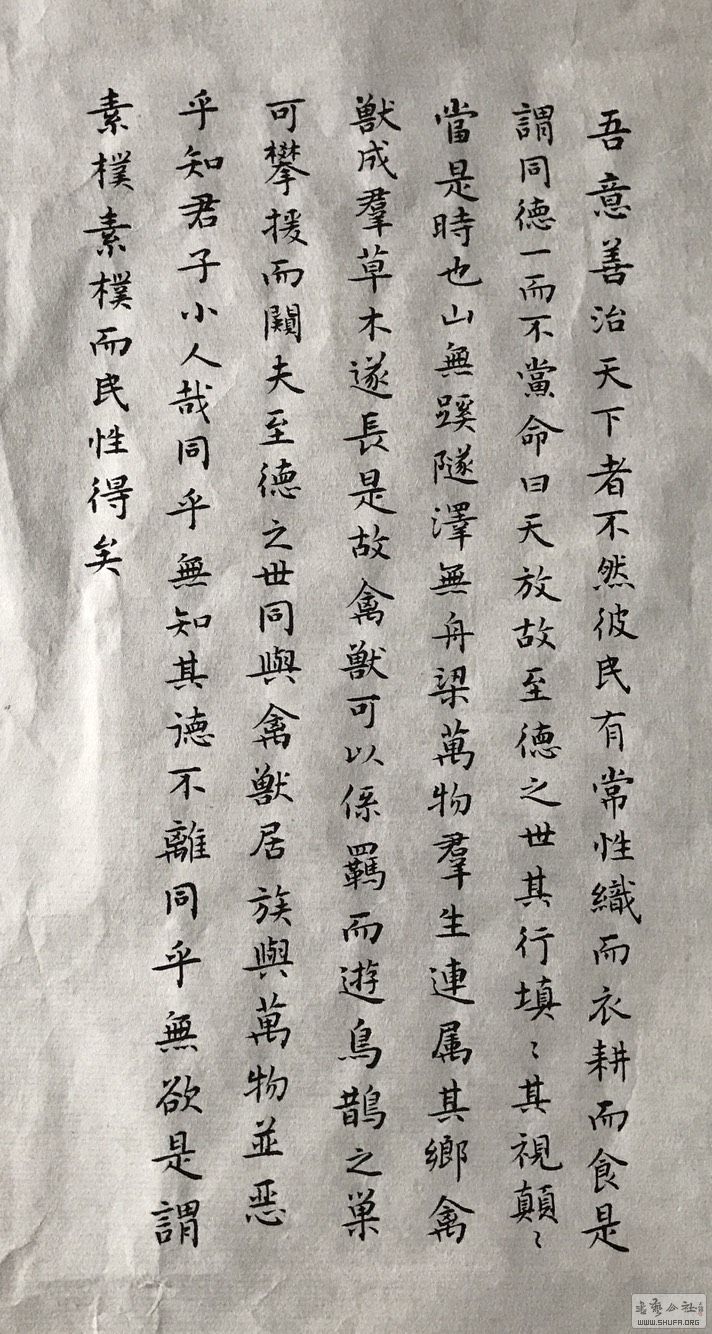 吾意善治天下者不然彼民有常性織而衣耕而食是
謂同德一而不黨命曰天放故至德之世其行填〻其視顛〻
當是時也山無蹊隧澤無舟梁萬物羣生連属其鄉禽
獸成羣草木遂長是故禽獸可以係羈而遊鳥鵲之巢
可攀援而闚夫至德之世同與禽獸居族與萬物並恶
乎知君子小人哉同乎無知其德不離同乎無欲是謂
素樸素樸而民性得矣
WWW.SHUFA.ORG